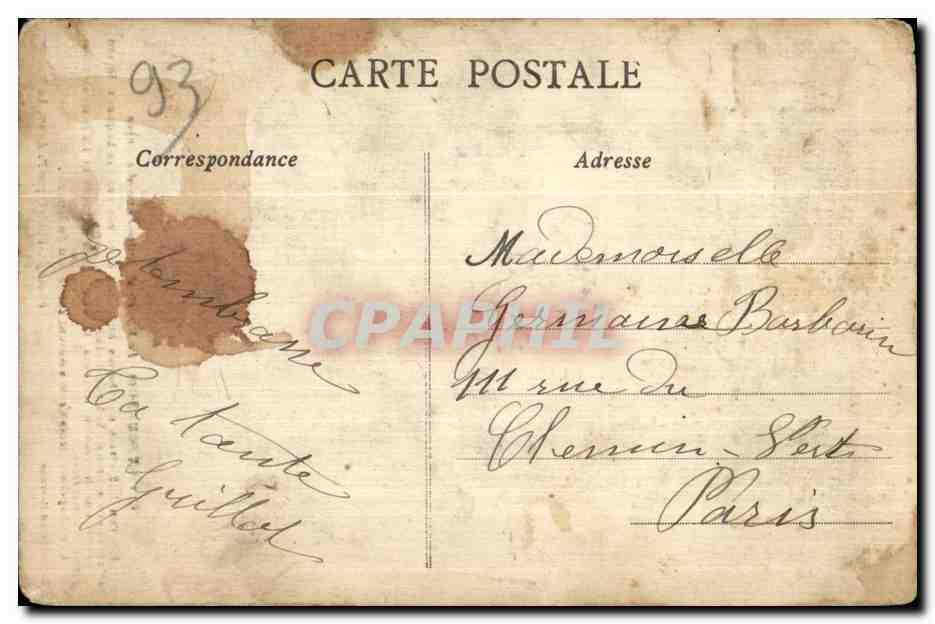 93
CARTE POSTALE
Correspondance
Je t'embrasse
Ta tante
Guillot
Adresse
Mademoiselle
Germaine Barbarin
111 rue du
Chemin-Vert
Paris
CPAPHIL